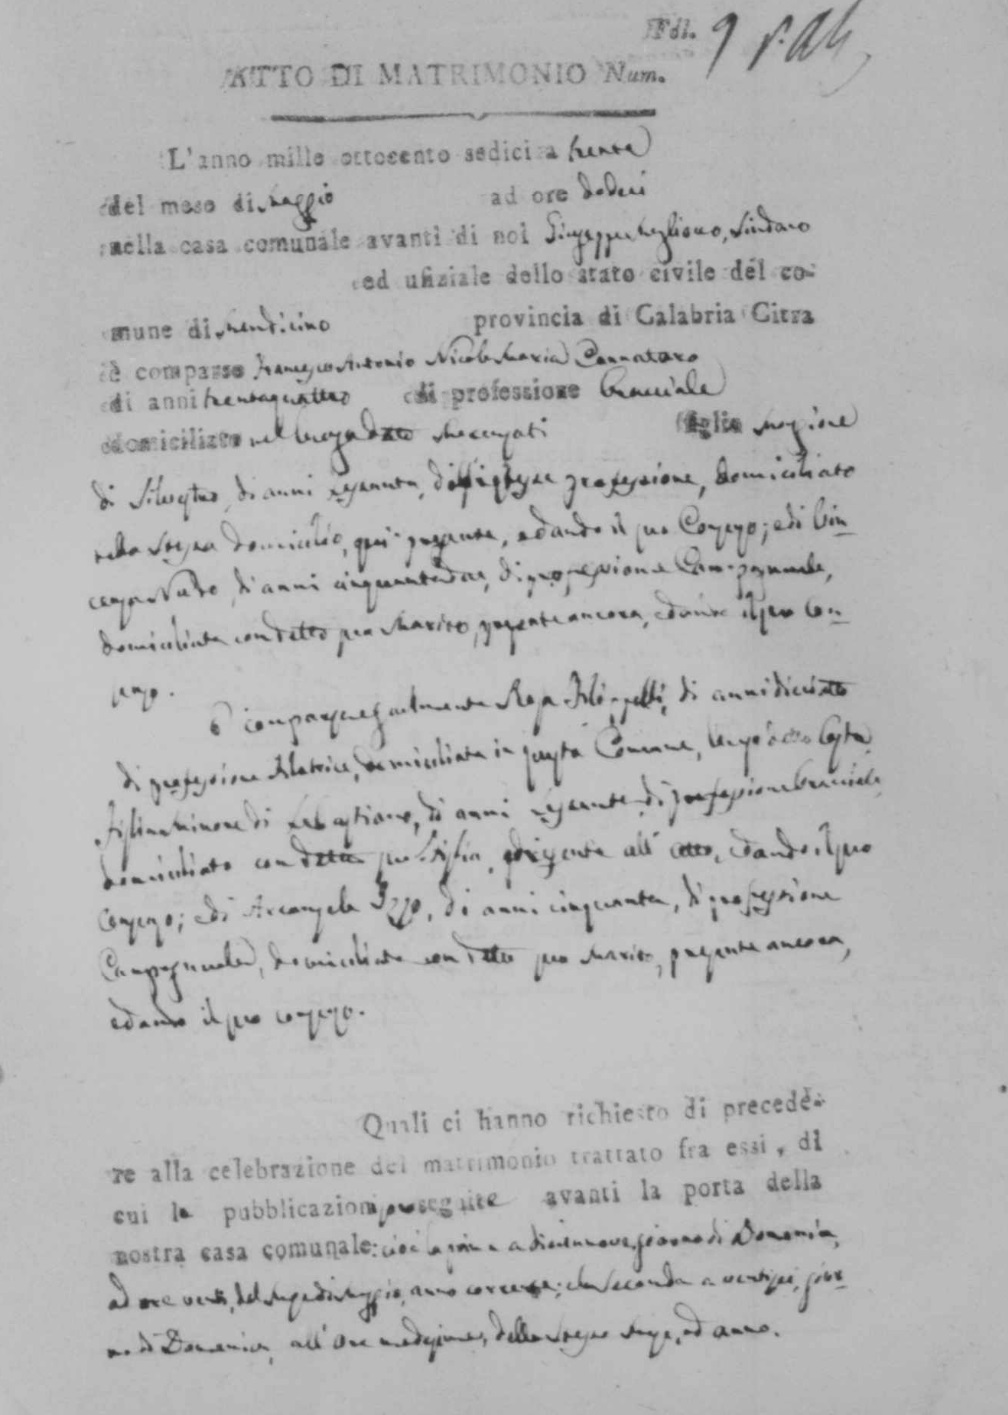 Fol. 9
ATTO DI MATRIMONIO Num.
L'anno mille ottocento sedici a trenta
del mese di Maggio ad ore dodeci
nella casa comunale avanti di noi Giuseppe Sindaco
ed ufiziale dello stato civile del co-
mune di Mendicino provincia di Calabria Citra
è comparso Francesco Antonio Nicola Maria Cannataro
di anni trentaquattro di professione bracciale
domiciliato nel luogo detto figlio
di Silvestro, di anni sessanta, dell'istessa professione, domiciliato
nello stesso domicilio, qui presente, e dando il suo Consenso; e di Vin-
cenza Nudo, di anni cinquantadue, di professione Campagnuola,
domiciliata con detto suo Marito, presente ancora, e dando il suo Con-
senso.
È comparsa egualmente Rosa di anni diciotto
di professione Filatrice, domiciliata in questa Comune, luogo detto
figlia minore di Sebastiano, di anni sessanta di professione bracciale
domiciliato con detta sua Figlia, presente all' atto, e dando il suo
Consenso; e di Arcangela Izzo, di anni cinquanta, di professione
Campagnuola, domiciliata con detto suo Marito, presente ancora,
e dando il suo consenso.
Quali ci hanno richiesto di precede-
re alla celebrazione del matrimonio trattato fra essi, di
cui le pubblicazioni seguite avanti la porta della
nostra casa comunale: cioè la prima a diciennove giorno di Domenica,
ad ore venti, del Mese di Maggio, anno corrente; e la seconda a ventisei, gior-
no di Domenica, all' ore medesime, dello stesso Mese, ed anno.